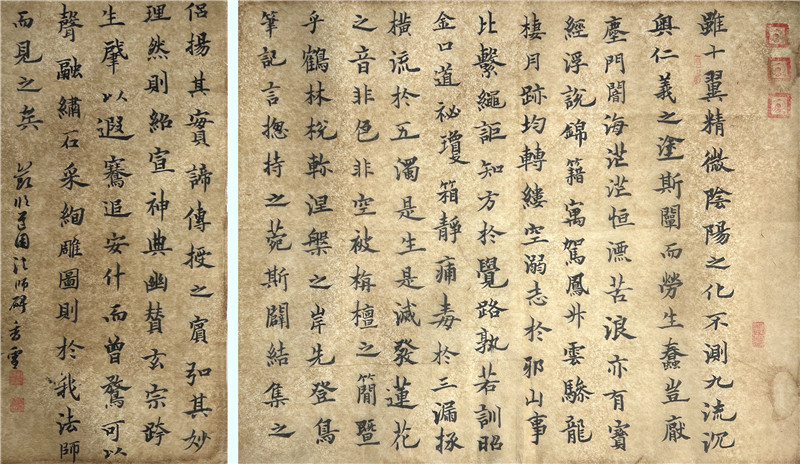 雖十翼精微陰陽之化不測九流沉
奧仁義之塗斯闡而勞生蠢豈厭
塵門闇海茫茫恒漂苦浪亦有寶
經浮說錦籍寓駕鳳升雲驂龍
棲月跡均轉縷空溺志於邪山事
比繫繩詎知方於覺路孰若訓昭
金口道祕瓊箱靜痛毒於三漏拯
橫流於五濁是生是滅發蓮花
之音非色非空被栴檀之簡暨
乎鶴林梲軫涅槃之岸先登鳥
筆記言揔持之菀斯闢結集之
侶揚其寶諦傳授之賓弘其妙
理然則紹宣神典幽贊玄宗跨
生肇以遐騫追安什而曾騖可以
聲融繡石采絢雕圖則於我法師
而見之矣 臨道因法師碑 香雪